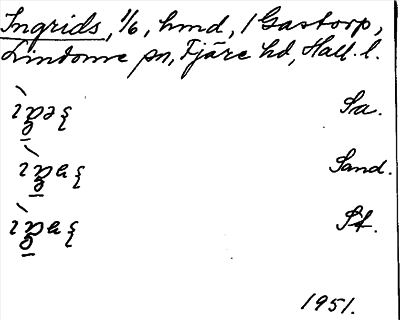 Ingrids, 1/6, hmd, 1 Gastorp,
Lindome sn, Fjäre hd, Hall. l.
Sa.
Sand.
St.
1951.